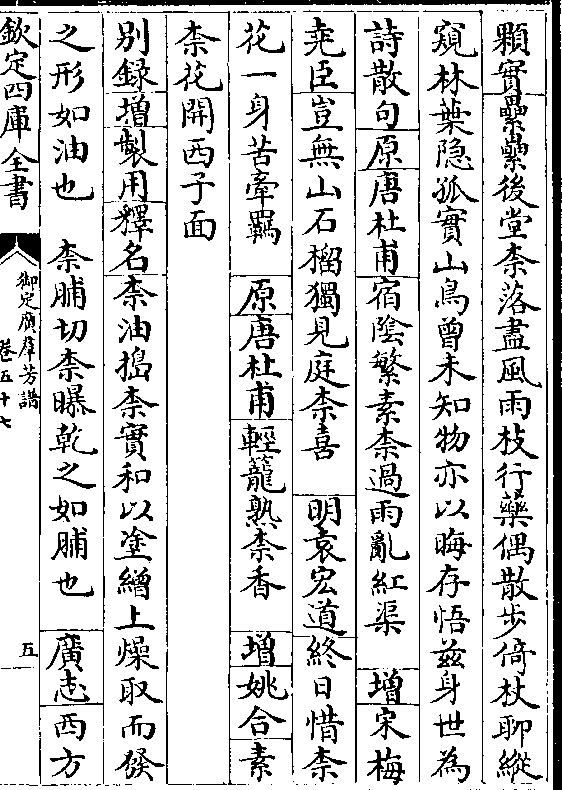 顆實纍纍後堂柰落盡風雨枝行藥偶散步倚杖聊縱
窺林葉隐孤實山鳥曾未知物亦以晦存悟兹身世為
詩散句原唐杜甫宿隂繁素柰過雨亂紅渠 增宋梅
堯臣豈無山石榴獨見庭柰喜 明袁宏道終日惜柰
花一身苦牽羈 原唐杜甫輕籠熟柰香 增姚合素
柰花開西子面
别録增製用釋名柰油搗柰實和以塗繒上燥取而發
之形如油也 柰脯切柰曝乾之如脯也 廣志西方
欽定四庫全書
御定廣羣芳譜
卷五十七
五